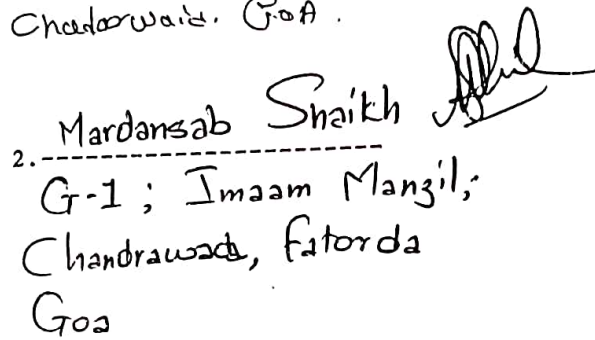 Chandorwaid. GOA.
Mardansab Shaikh
2.
G-1; Imaam Manzil,
Chandrawada, Fatorda
Goa